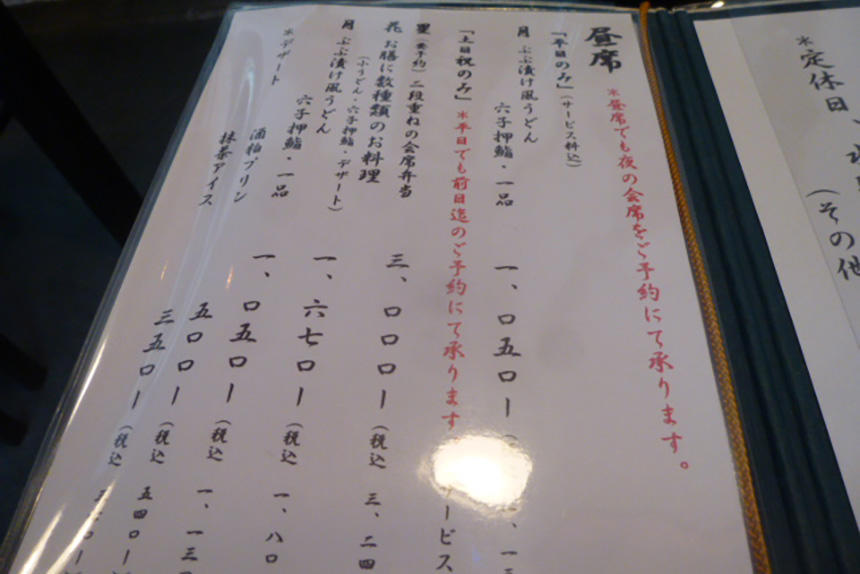 昼席
＊昼席でも夜の会席をご予約にて承ります。
「平日のみ」（サービス料込）
月 ぶぶ漬け風うどん
六子押鮨・一品 一、〇五〇ー
「土日祝のみ」＊平日でも前日迄のご予約にて承ります
ービス
星（要予約）二段重ねの会席弁当 三、〇〇〇ー（税込 三、二四
花 お膳に数種類のお料理
（小うどん・六子押鮨・デザート） 一、六七〇ー（税込 一、八〇
月 ぶぶ漬け風うどん
六子押鮨・一品 一、〇五〇ー（税込 一、一三
＊デザート
酒粕プリン 五〇〇ー（税込 五四〇ー
抹茶アイス 三五〇ー（税込
＊定休日、
（その他